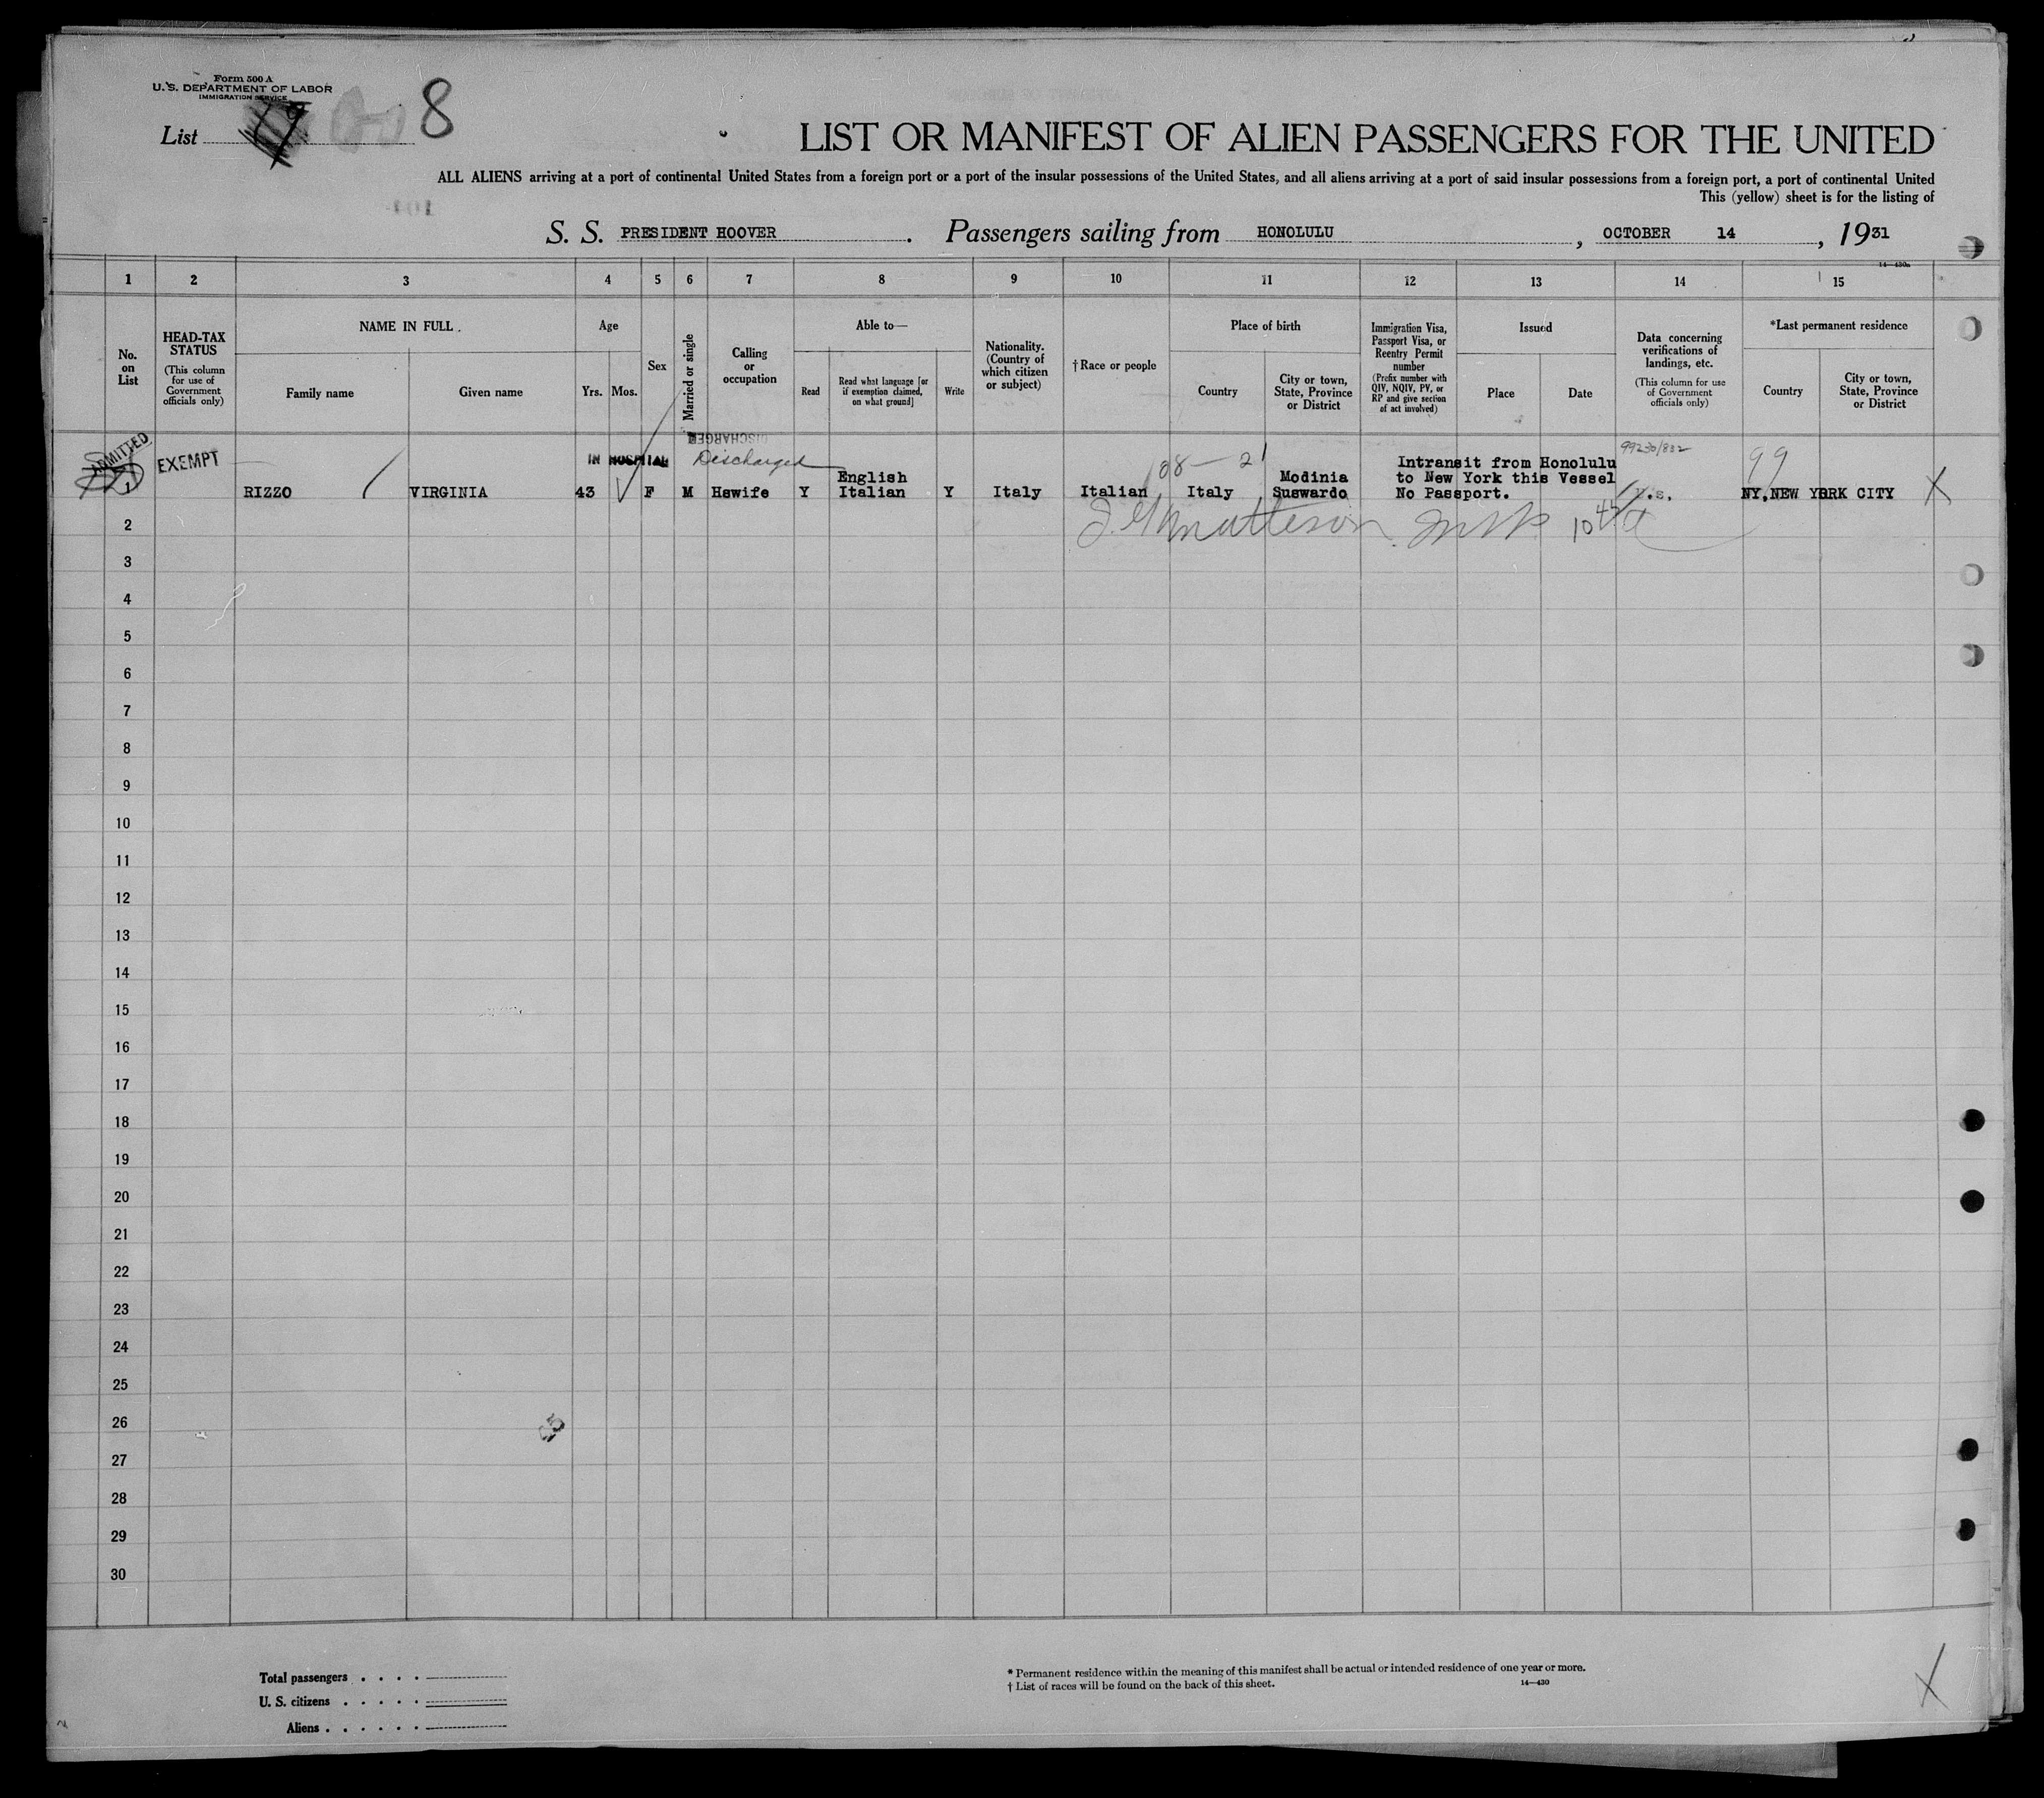 Form 500 A
U. S. DEPARTMENT OF LABOR
IMMIGRATION SERVICE
List 8
LIST OR MANIFEST OF ALIEN PASSENGERS FOR THE UNITED
ALL ALIENS arriving at a port of continental United States from a foreign port or a port of the insular possessions of the United States, and all aliens arriving at a port of said insular possessions from a foreign port, a port of continental United
This (yellow) sheet is for the listing of
S. S. PRESIDENT HOOVER. Passengers sailing from HONOLULU, OCTOBER 14, 1931
14—430a
1 2 3 4 5 6 7 8 9 10 11 12 13 14 15
No. on List
HEAD-TAX STATUS
(This column for use of Government officials only)
NAME IN FULL
Family name
Given name
Age
Yrs.
Mos.
Sex
Married or single
Calling or occupation
Able to—
Read
Read what language [or if exemption claimed, on what ground]
Write
Nationality. (Country of which citizen or subject)
† Race or people
Place of birth
Country
City or town, State, Province or District
Immigration Visa, Passport Visa, or Reentry Permit number
(Prefix number with QIV, NQIV, PV, or RP and give section of act involved)
Issued
Place
Date
Data concerning verifications of landings, etc.
(This column for use of Government officials only)
*Last permanent residence
Country
City or town, State, Province or District
ADMITTED
EXEMPT
IN HOSPITAL
DISCHARGED
Discharged
99230/832
108 — 21
99
1 RIZZO VIRGINIA 43 F M Hswife Y English Italian Y Italy Italian Italy Modinia Suswardo Intransit from Honolulu to New York this Vessel No Passport. U.S. NY,NEW YORK CITY X
2
3
4
5
6
7
8
9
10
11
12
13
14
15
16
17
18
19
20
21
22
23
24
25
26
27
28
29
30
Total passengers . . . .
U. S. citizens . . . . .
Aliens . . . . . .
* Permanent residence within the meaning of this manifest shall be actual or intended residence of one year or more.
† List of races will be found on the back of this sheet.
14—430
X